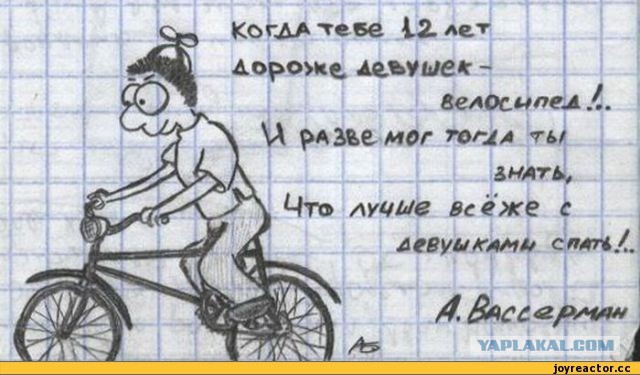 Когда тебе 12 лет
дороже девушек –
велосипед!..
И разве мог тогда ты
знать,
Что лучше всёже с
девушками спать!..
А. Вассерман
АБ
YAPLAKAL.COM
joyreactor.cc